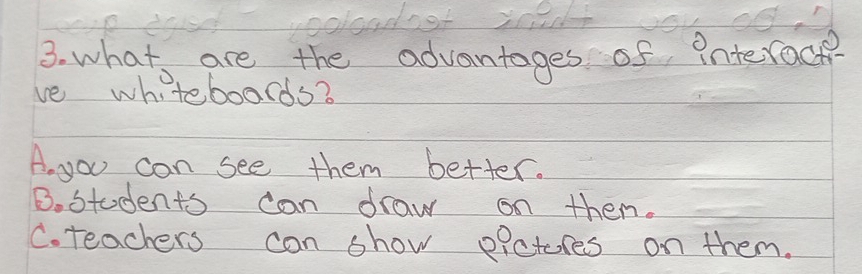 3. what are the advantages of interacti-
ve whiteboards?
A. you can see them better.
B. students can draw on them.
C. teachers can show pictures on them.